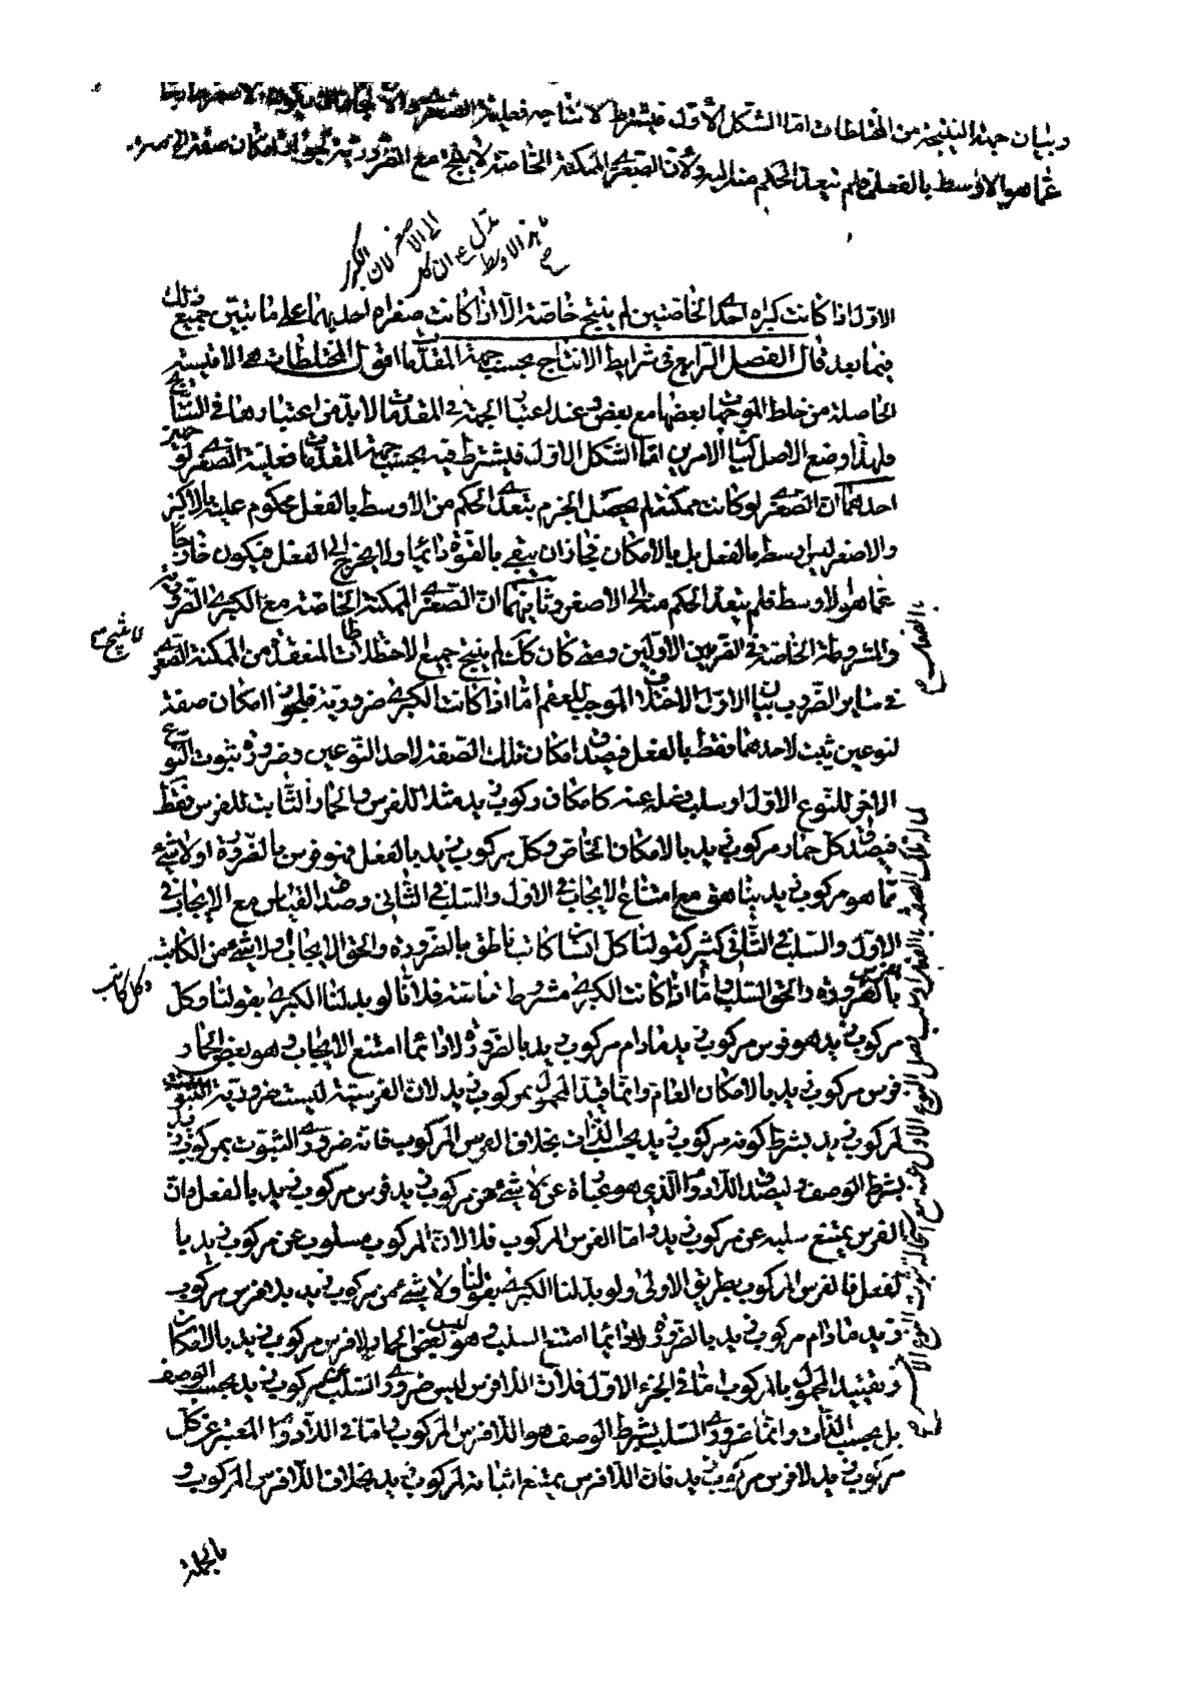 وبيان جهة النتيجة من المختلطات اما الشكل الأول فيشترط لانتاجه فعلية الصغرى والا لجاز ان يكون الاصغر خارجا
عما هو الاوسط بالفعل فلم يتعد الحكم منه اليه ولأن الصغرى الممكنة الخاصة لا ينتج مع الضرورية لجواز امكان صفة
الاول اذا كانت كبراه احدى الخاصتين لم ينتج خاصة الا اذا كانت صغراه احديهما على ما تبين جميع ذلك
فيما بعد قال الفصل الرابع في شرايط الانتاج بحسب جهة المقدمات اقول المختلطات هي الاقيسة
الحاصلة من خلط الموجهات بعضها مع بعض وعند اعتبار الجهة في المقدمات لا بد من اعتبارها في النتايج
فلهذا وضع الاصل لبيان الامرين اما الشكل الاول فيشترط فيه بحسب جهة المقدمات فعلية الصغرى لوجهين
احدهما ان الصغرى لو كانت ممكنة لم يحصل الجزم بتعدى الحكم من الاوسط بالفعل محكوم عليه بالاكبر
والاصغر ليس اوسط بالفعل بل بالامكان فجاز ان يبقى بالقوة دائما ولا يخرج الى الفعل فيكون خارجا
عما هو الاوسط فلم يتعد الحكم منه الى الاصغر وثانيهما ان الصغرى الممكنة الخاصة مع الكبرى الضرورية
والمشروطة الخاصة في الضربين الاولين ومتى كان كك لم ينتج جميع الاختلاطات المنعقدة من الممكنة الصغرى
في ساير الضروب بيان الاول الاختلاف الموجب للعقم اما اذا كانت الكبرى ضرورية فلجواز امكان صفة
لنوعين ثبت لاحدهما فقط بالفعل فيصدق امكان تلك الصفة لاحد النوعين وضرورة ثبوت النوع
الاخر للنوع الاول او سلب فصله عنه كامكان ركوب زيد مثلا للفرس والحمار الثابت للفرس فقط
فيصدق كل حمار مركوب زيد بالامكان الخاص وكل مركوب زيد بالفعل فهو فرس بالضرورة او لا شئ
مما هو مركوب زيد بناهق مع امتناع الايجاب في الاول والسلب في الثانى وصدق القياس مع الايجاب في
الاول والسلب في الثانى كثير كقولنا كل انسان كاتب ناطق بالضرورة والحق الايجاب ولا شئ من الكاتب
بفرس بالضرورة والحق السلب واما اذا كانت الكبرى مشروطة خاصة فلانا لو بدلنا الكبرى بقولنا وكل
مركوب زيد هو فرس مركوب زيد ما دام مركوب زيد بالضرورة لا دائما امتنع الايجاب وهو بعض الحمار
فرس مركوب زيد بالامكان العام وانما قيد المحمول بمركوب زيد لان الفرسية ليست ضرورية الثبوت
لمركوب زيد بشرط كونه مركوب زيد بحسب الذات بخلاف الفرس المركوب فانه ضرورى الثبوت بمركوب زيد
بشرط الوصف وليصدق اللادوام الذي هو عبارة عن لا شئ من مركوب زيد فرس مركوب زيد بالفعل فان
الفرس يمتنع سلبه عن مركوب زيد واما الفرس المركوب فلا لان المركوب مسلوب عن مركوب زيد با
لفعل فالفرس المركوب بطريق الاولى ولو بدلنا الكبرى بقولنا ولا شئ من مركوب زيد بلا فرس مركوب
زيد ما دام مركوب زيد بالضرورة لا دائما امتنع السلب وهو ليس بعض الحمار بلا فرس مركوب زيد بالامكان
وتقييد المحمول بالمركوب اما في الجزء الاول فلان اللافرس ليس ضروري السلب عن مركوب زيد بحسب الوصف
بل بحسب الذات وانما ضروري السلب بشرط الوصف هو اللافرس المركوب واما في اللادوام المعتبر عن كل
مركوب زيد لا فرس مركوب زيد فان اللافرس يمتنع اثباته لمركوب زيد بخلاف اللافرس المركوب و
بالجملة
لا ينتج
وكل كاتب